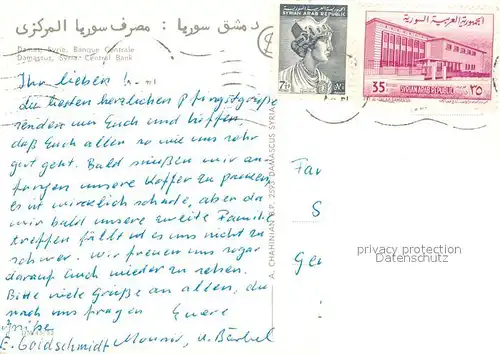 دمشق سوريا : مصرف سوريا المركزي
Damas, Syrie, Banque Centrale
Damascus, Syria, Central Bank
Ihr lieben!
die besten herzlichen Pfingstgrüße
senden wir Euch und hoffen,
daß Euch allen so wie uns sehr
gut geht. Bald müßen wir an-
fangen unsere Koffer zu packen,
es ist wirklich schade, aber da
wir bald unsere zweite Familie
treffen fällt es uns nicht zu
schwer. Wir freuen uns sogar
darauf Euch wieder zu sehen.
Bitte viele Grüße an allen, die
nach uns fragen Euere
E. Goldschmidt Mounir, u. Bärbel
A. CHAHINIAN B.P. 2592 DAMASCUS SYRIA
SYRIAN ARAB REPUBLIC
7½
الجمهورية العربية السورية
35 SYRIAN ARAB REPUBLIC ٣٥
Fam
S
Ge
privacy protection
Datenschutz